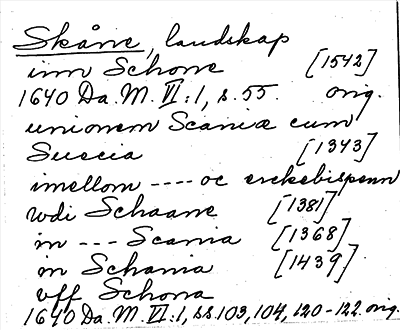 Skåne, landskap
inn Schone [1542]
1640 Da. M. VI:1, s. 55. orig.
unionem Scaniæ cum
Suecia [1343]
imellom ---- oc erckebispenn
wdi Schaane [1381]
in --- Scania [1368]
in Schania [1439]
vff Schona
1640 Da. M. VI:1, ss 103, 104, 120-122. orig.